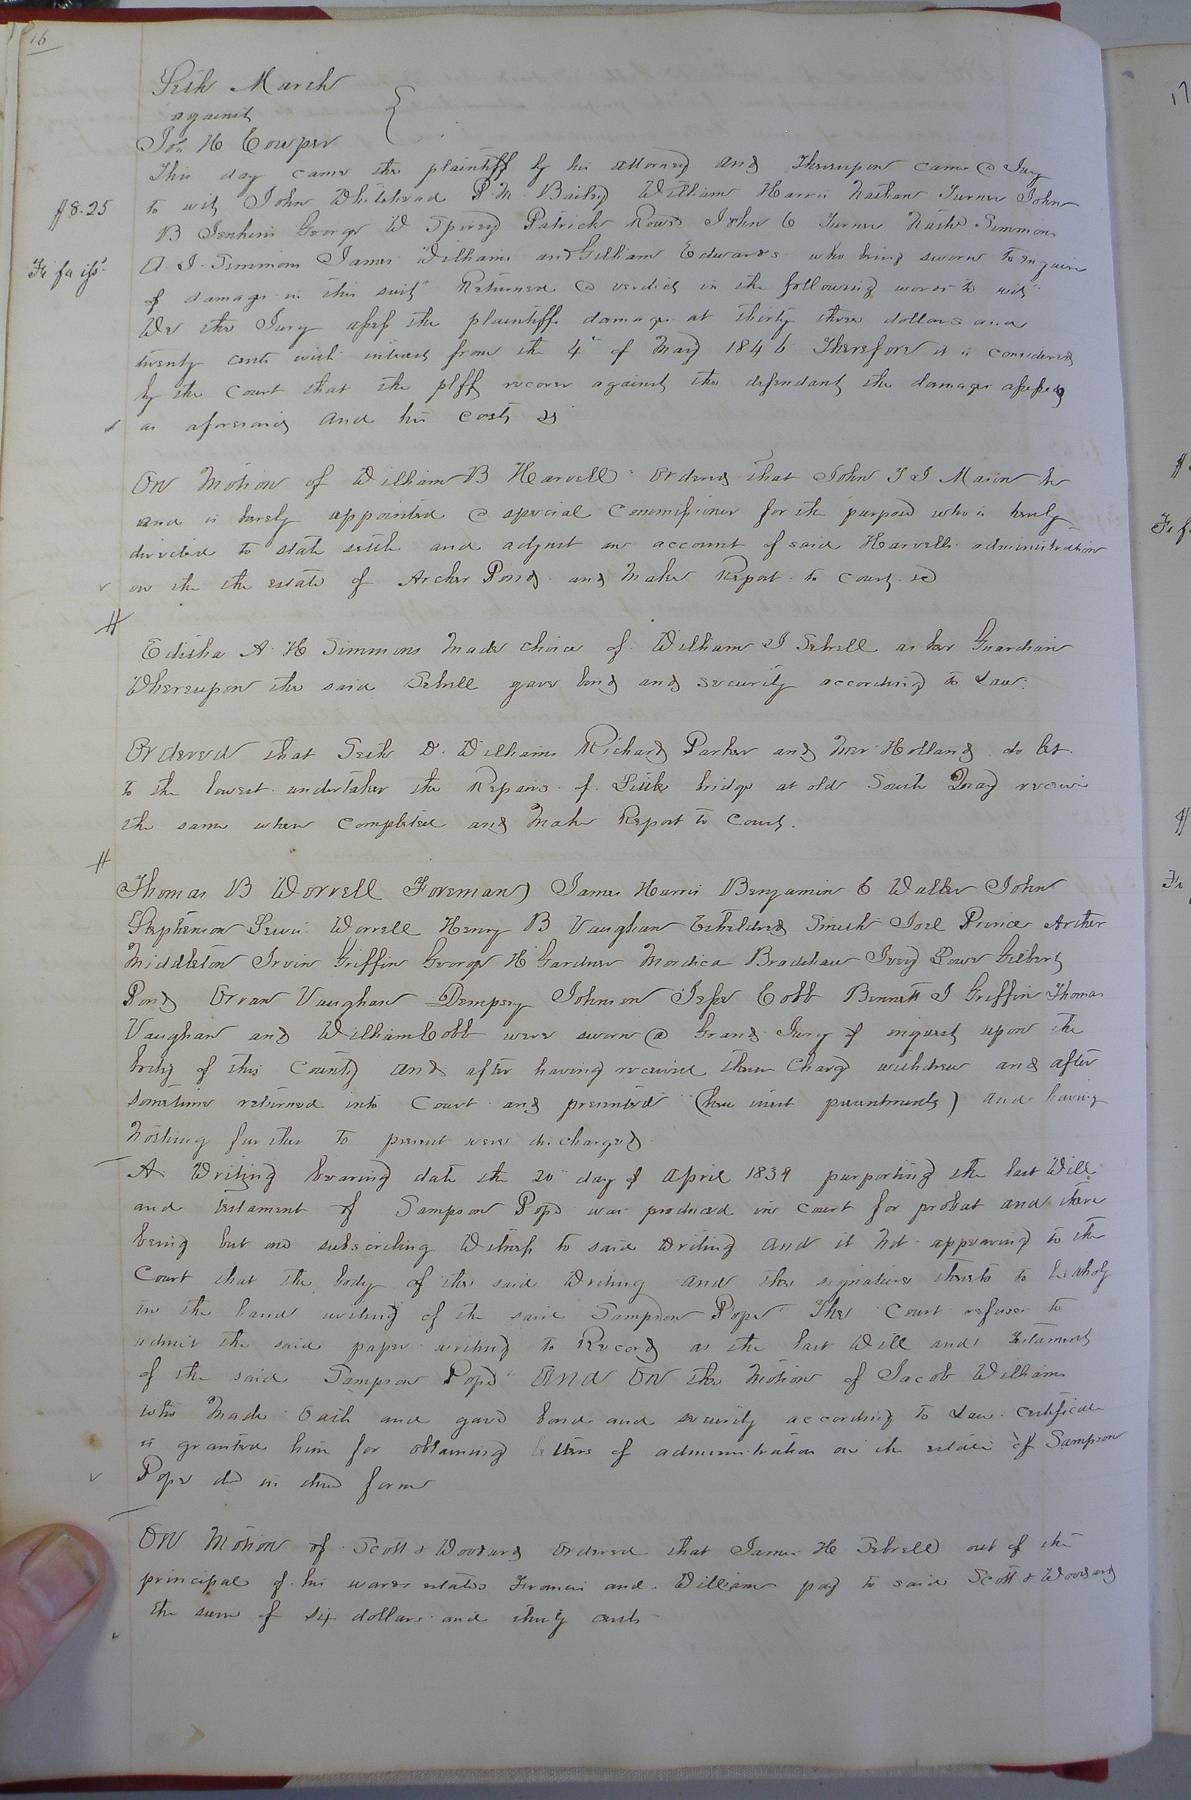 16
Seth March
against
Jos. H Cowper
This day came the plaintiff by his attorney and thereupon came a Jury
$8.25
to wit John Whitehead P M Bailey William Harris Nathan Turner John
B Jenkins George W Spivey Patrick Rowe John C Turner Simmons
Fi fa iss.
A. J. Simmons James Williams and Gilliam Edwards who being sworn to inquire
of damage in this suit Returned a verdict in the following words to wit
We the Jury assess the plaintiffs damage at thirty three dollars and
twenty cents with interest from the 4" of May 1846 Therefore it is considered
by the Court that the plff recover against the defendant the damages assessed
as aforesaid and his costs &
On Motion of William B Harvell ordered that John T J Mason be
and is hereby appointed a special Commissioner for the purpose who is hereby
directed to state settle and adjust an account of said Harvells administration
on the the estate of Archer Pond and make Report to Court &
#
Editha A. H Simmons made choice of William J Sebrell as her Guardian
Whereupon the said Sebrell gave bond and security according to Law.
Ordered that Seth D. Williams Richard Parker and Holland do let
to the lowest undertaker the Repairs of Little bridge at old South Quay receive
the same when completed and make Report to Court.
#
Thomas B Worrell Foreman) James Harris Benjamin C Waller John
Stephenson Lewis Worrell Henry B Vaughan Etheldred Smith Joel Prince Archer
Middleton Irvin Griffin George H Gardner Mordica Bradshaw Ivey Powe Gilbert
Pond Orran Vaughan Dempsey Johnson Jesse Cobb Bennett J Griffin Thomas
Vaughan and William Cobb were sworn a Grand Jury of inquest upon the
body of this County and after having received their Charge withdrew and after
sometime returned into Court and presented (here insert presentments) and having
nothing further to present were discharged
A Writing bearing date the 20" day of April 1834 purporting the last Will
and Testament of Sampson Pope was produced in Court for probat and there
being but one subscribing Witness to said writing and it not appearing to the
Court that the body of the said Writing and the signature thereto to be wholy
in the hand writing of the said Sampson Pope The Court refuse to
admit the said paper writing to Record as the last Will and Testament
of the said Sampson Pope And on the Motion of Jacob Williams
who made oath and gave bond and security according to Law Certificate
is granted him for obtaining letters of administration on the estate of Sampson
Pope dd in due form
On Motion of Scott & Woodard ordered that James H Sebrell out of the
principal of his wards estates Francis and William pay to said Scott & Woodard
the sum of six dollars and thirty cents